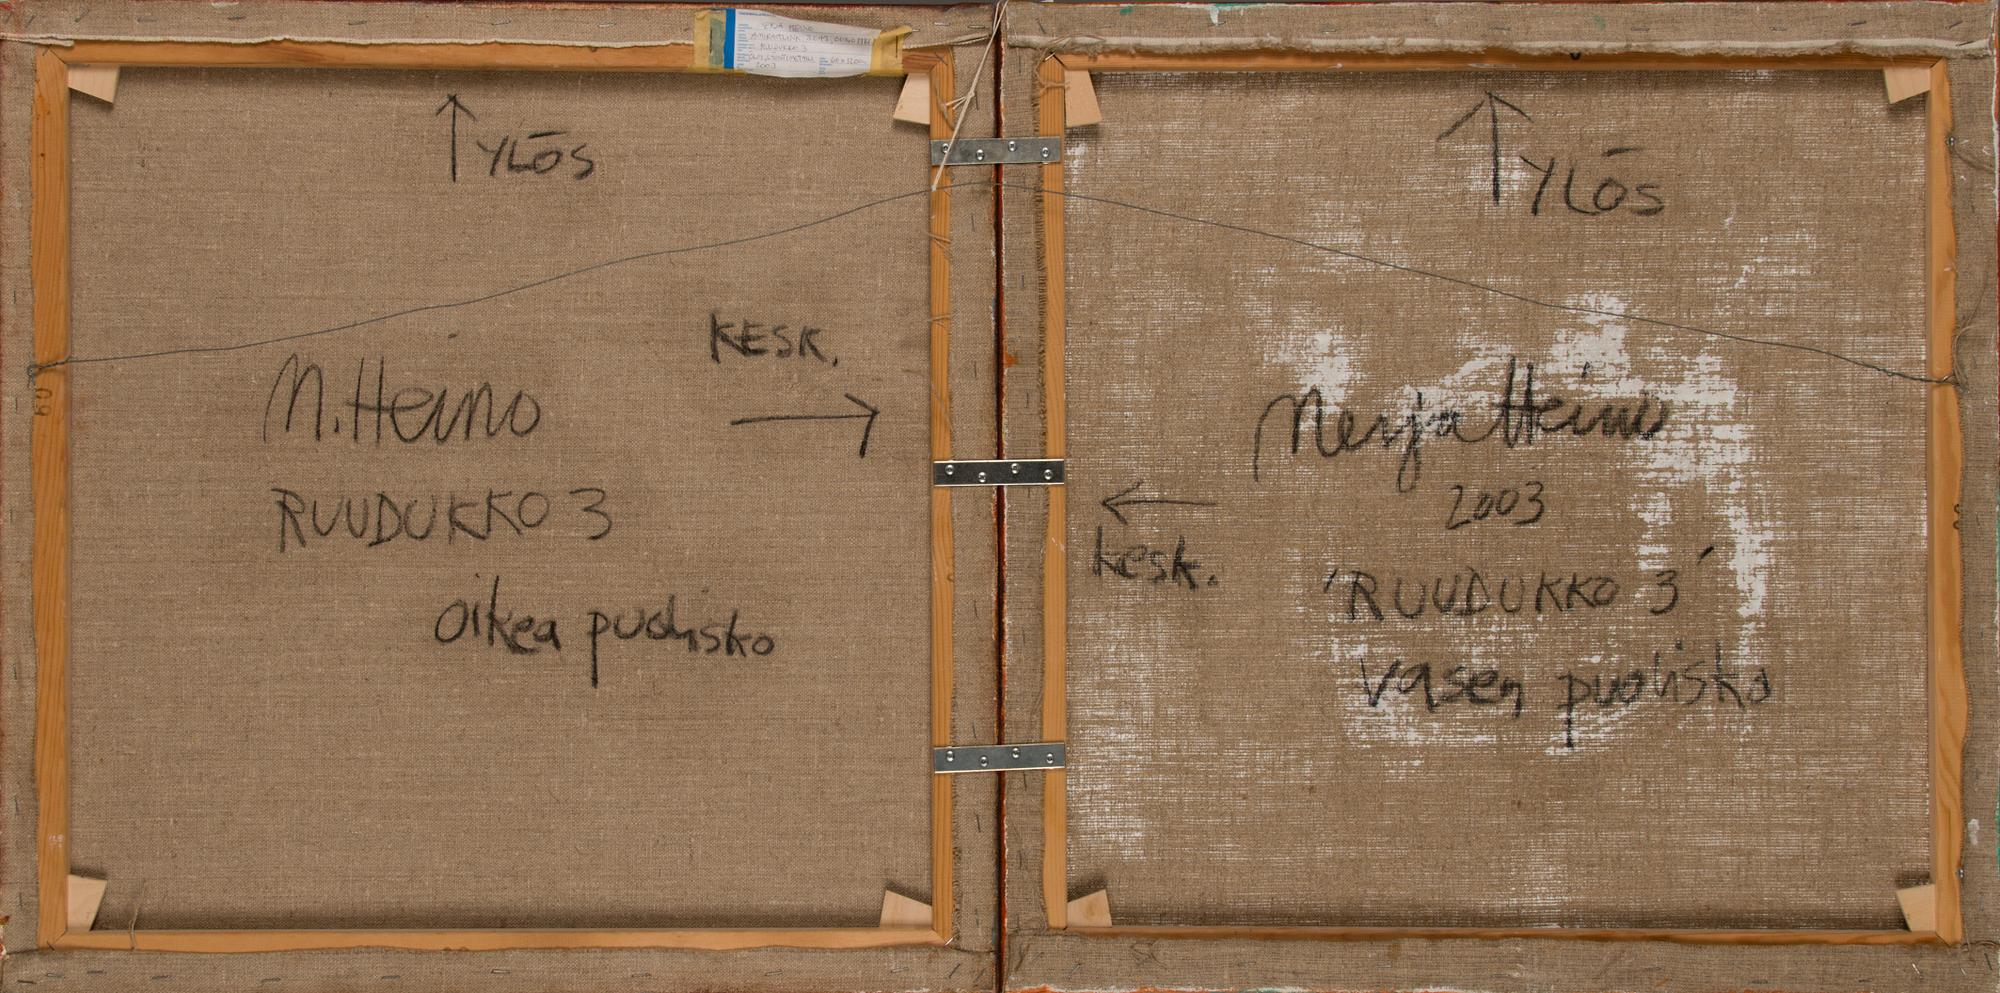 RUUDUKKO 3
2003
YLÖS
KESK.
M. Heino
RUUDUKKO 3
oikea puolisko
60
YLÖS
Merja Heino
2003
kesk.
'RUUDUKKO 3'
vasen puolisko